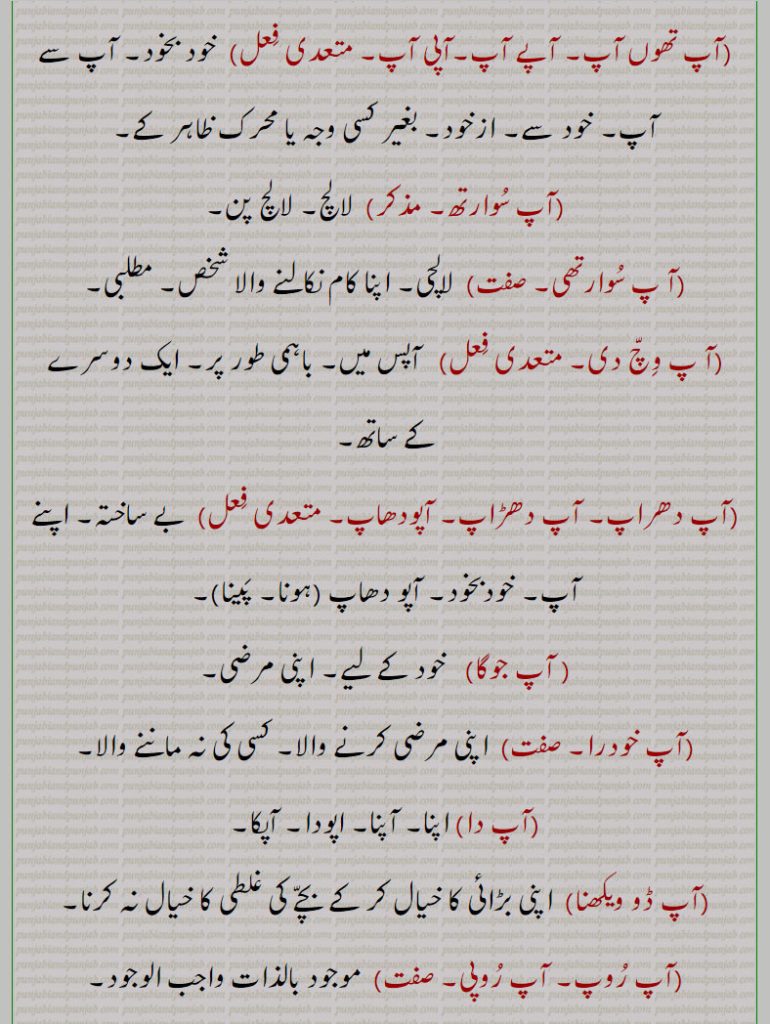 (آپ تھوں آپ۔ آپے آپ۔آپی آپ۔ متعدی فِعل) خود بخود۔ آپ سے
آپ۔ خود سے۔ ازخود۔ بغیر کسی وجہ یا محرک ظاہر کے۔
(آپ سُوارتھ۔ مذکر) لالچ۔ لالچ پن۔
(آ پ سُوارتھی۔ صفت) لالچی۔ اپنا کام نکالنے والا شخص۔ مطلبی۔
(آ پ وِچّ دی۔ متعدی فِعل) آپس میں۔ باہمی طور پر۔ ایک دوسرے
کے ساتھ۔
(آپ دھراپ۔ آپ دھڑاپ۔ آپودھاپ۔ متعدی فِعل) بے ساختہ۔ اپنے
آپ۔ خودبخود۔ آپو دھاپ (ہونا۔ پَینا)۔
( آپ جوگا) خود کے لیے۔ اپنی مرضی۔
(آپ خودرا۔ صفت) اپنی مرضی کرنے والا۔ کسی کی نہ ماننے والا۔
(آپ دا) اپنا۔ آپنا۔ اپودا۔ آپکا۔
(آپ ڈو ویکھنا) اپنی بڑائی کا خیال کر کے بچّے کی غلطی کا خیال نہ کرنا۔
(آپ رُوپ۔ آپ رُوپی۔ صفت) موجود بالذات واجب الوجود۔